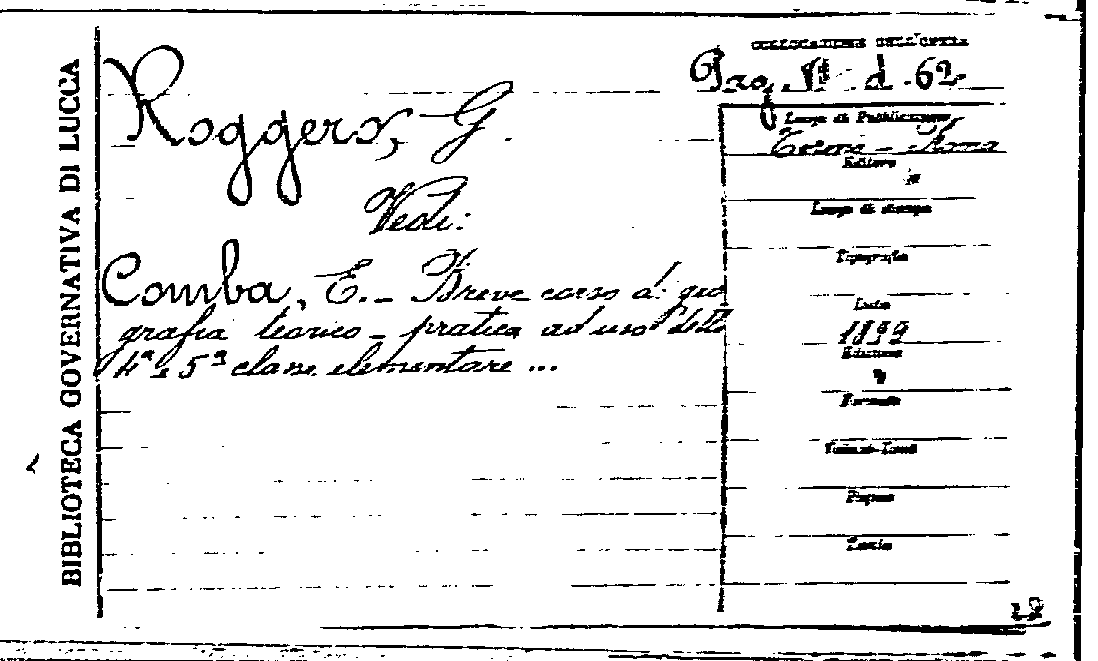 BIBLIOTECA GOVERNATIVA DI LUCCA
COLLOCAZIONE DELL'OPERA
d. 62
Roggero, G.
Vedi:
Comba, E. - Breve corso di geo
grafia teorico - pratica ad uso della
4ª e 5ª classe elementare ...
Luogo di Pubblicazione
Torino - Roma
Editore
Luogo di stampa
Tipografia
Data
1899
Edizione
Formato
Volumi-Tomi
Pagine